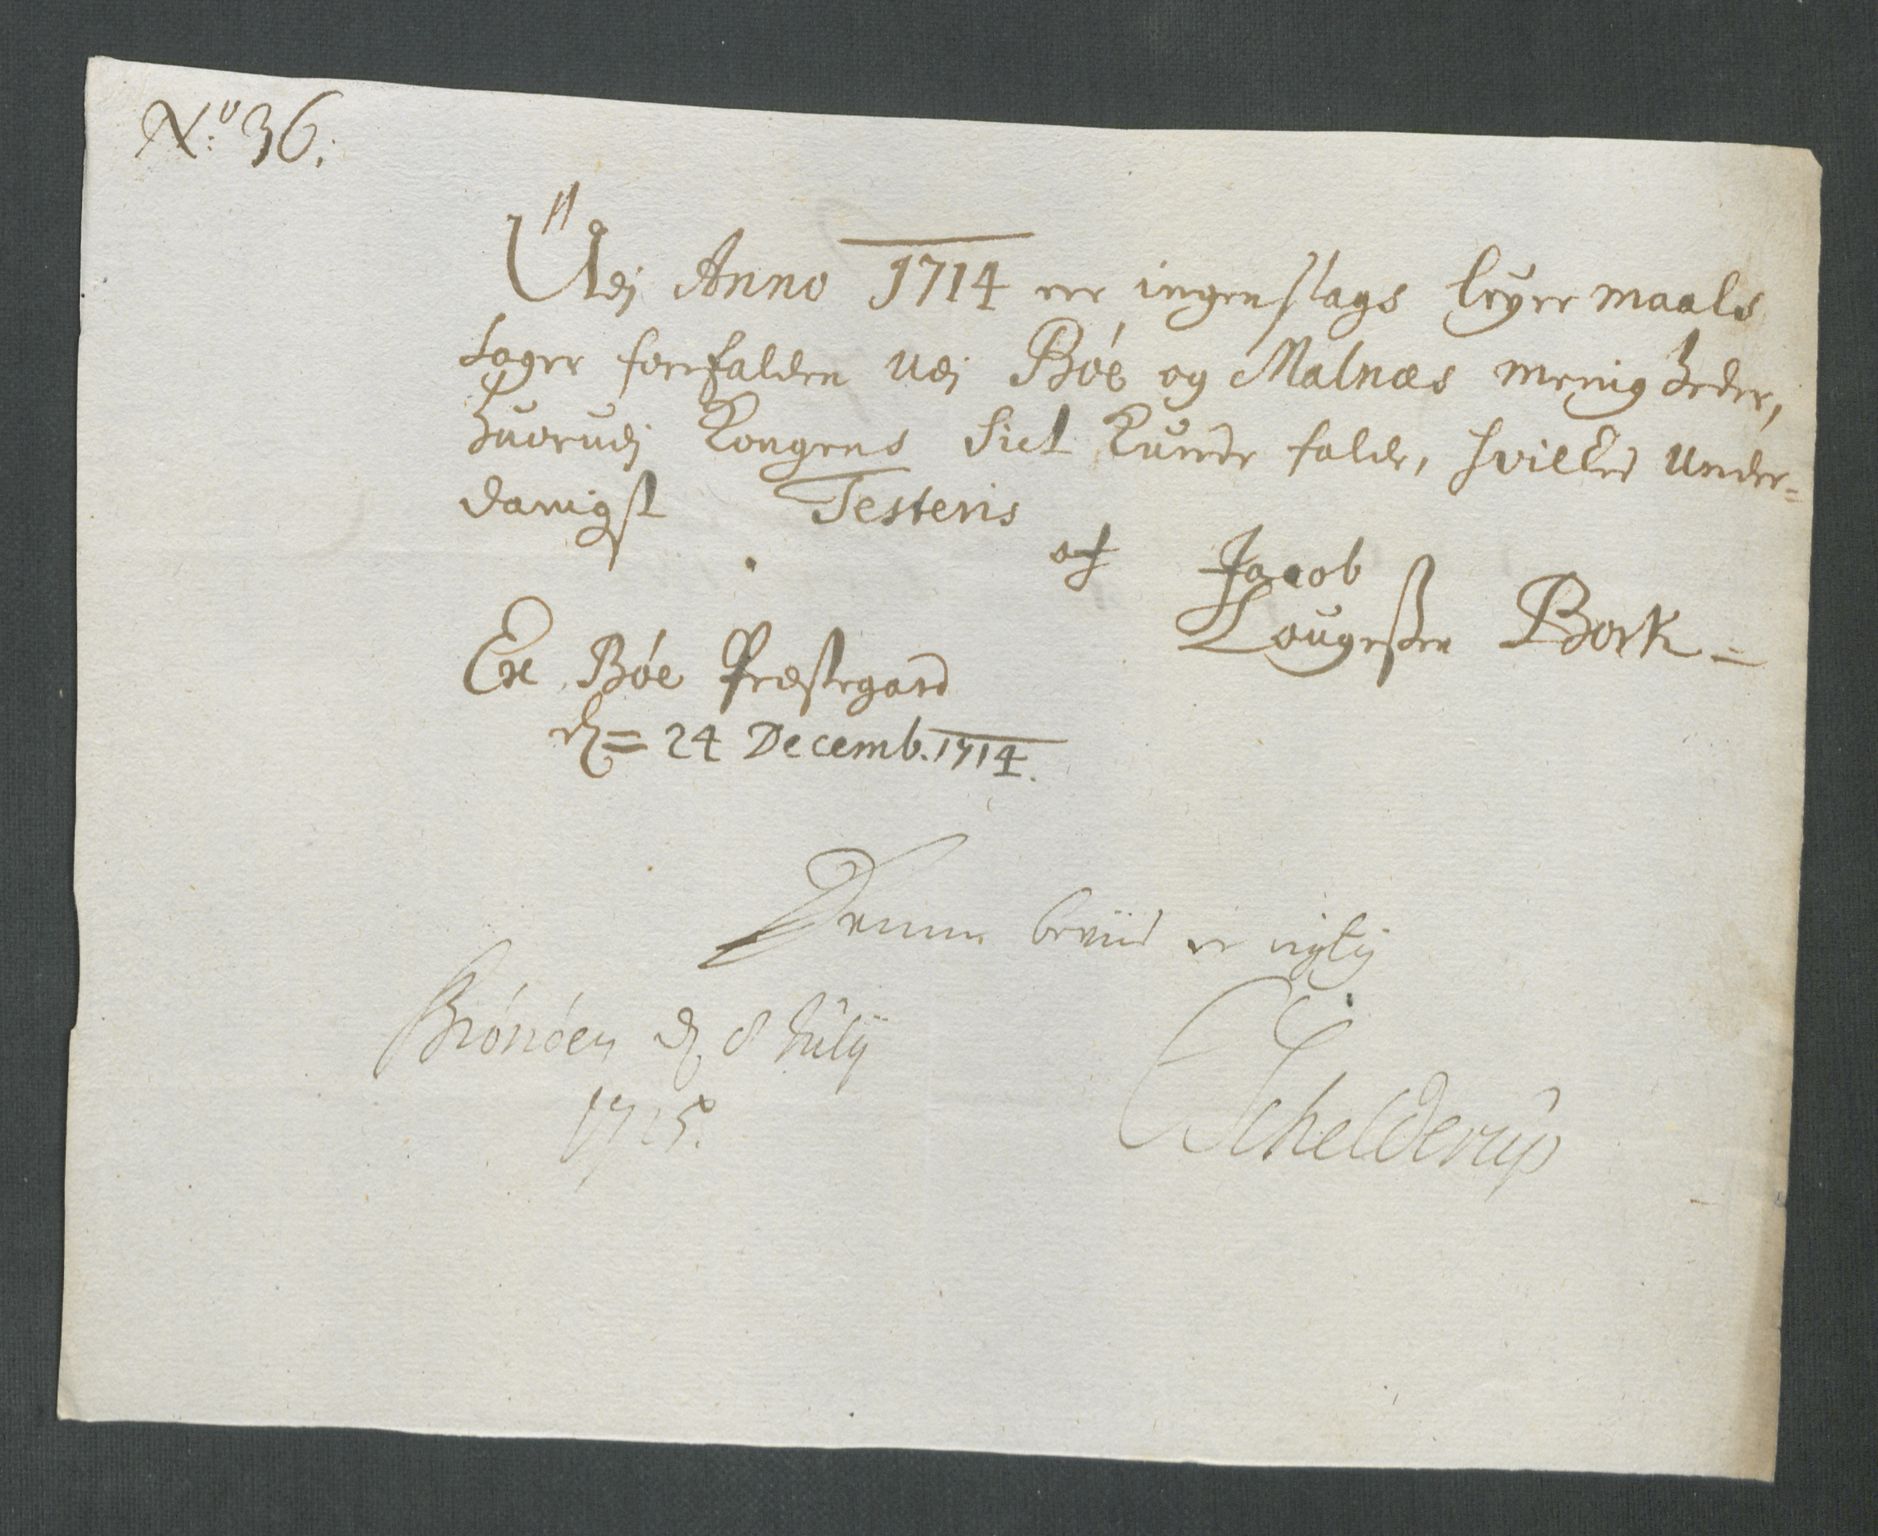 No: 36.
Udj Anno 1714 er ingen slags leyermaals
sager forefalden udj Bóe og Malnæs menigheder,
huorudj Kongens Sict kunde falde, hvilked under=
danigst Testeris
af Jacob
Lougesßen Bork=
Ex Bóe Præstegard
d= 24 Decemb. 1714.
Denne beviis er rigtig
Brónóen d. 8 July
1715.
Schelderup